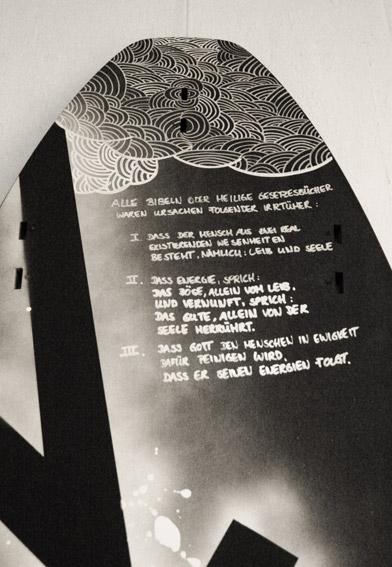 ALLE BIBELN ODER HEILIGE GESETZESBÜCHER
WAREN URSACHEN FOLGENDER IRRTÜMER:
I. DASS DER MENSCH AUS ZWEI REAL
EXISTIERENDEN WESENHEITEN
BESTEHT, NÄMLICH: LEIB UND SEELE
II. DASS ENERGIE, SPRICH:
DAS BÖSE, ALLEIN VOM LEIB.
UND VERNUNFT, SPRICH:
DAS GUTE, ALLEIN VON DER
SEELE HERRÜHRT.
III. DASS GOTT DEN MENSCHEN IN EWIGKEIT
DAFÜR PEINIGEN WIRD,
DASS ER SEINEN ENERGIEN FOLGT.